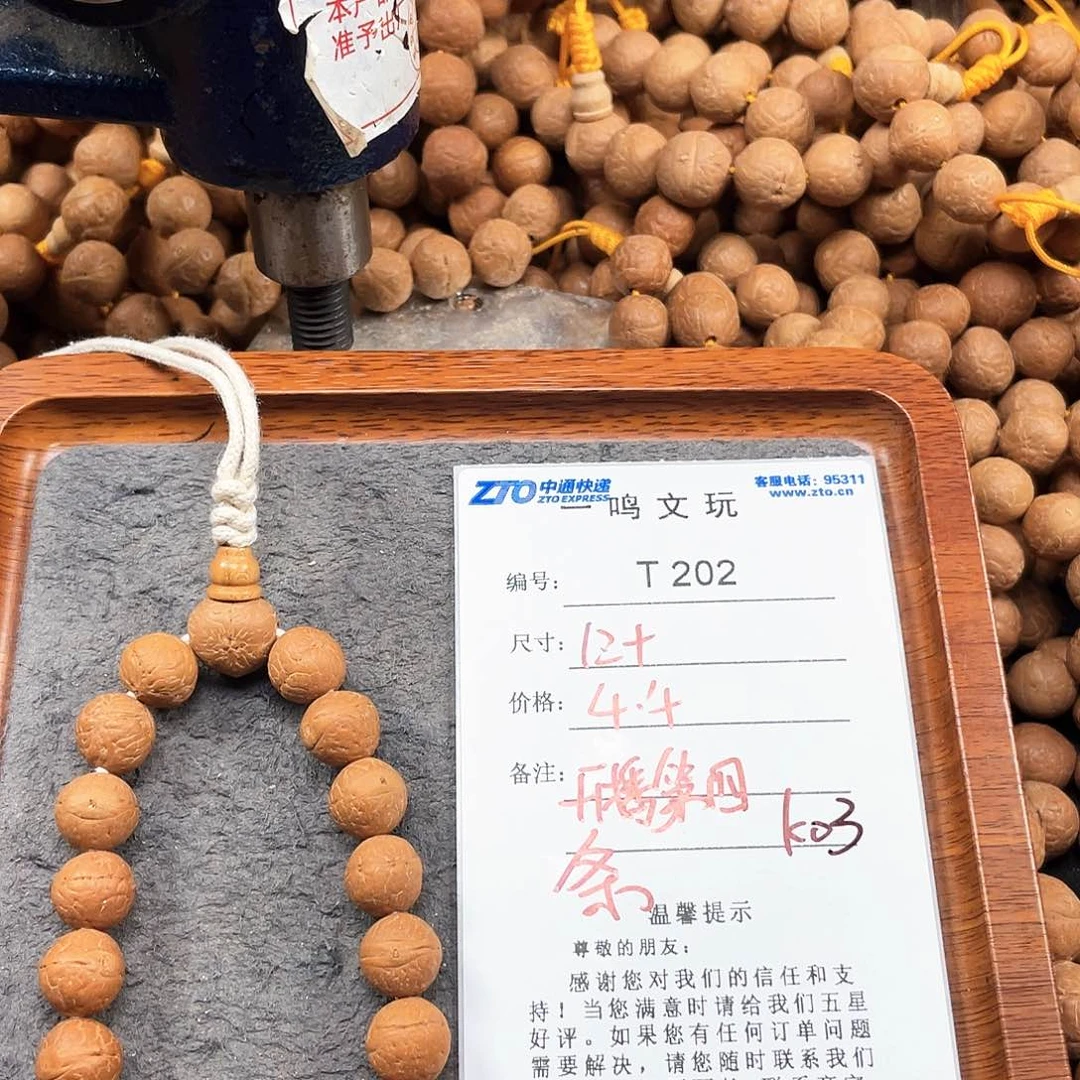 本产品
准予出
ZTO 中通快递
ZTO EXPRESS
客服电话：95311
www.zto.cn
一鸣文玩
编号： T 202
尺寸： 12+
价格： 4.4
备注： 开播第四
条
k03
温馨提示
尊敬的朋友：
感谢您对我们的信任和支
持！当您满意时请给我们五星
好评。如果您有任何订单问题
需要解决，请您随时联系我们